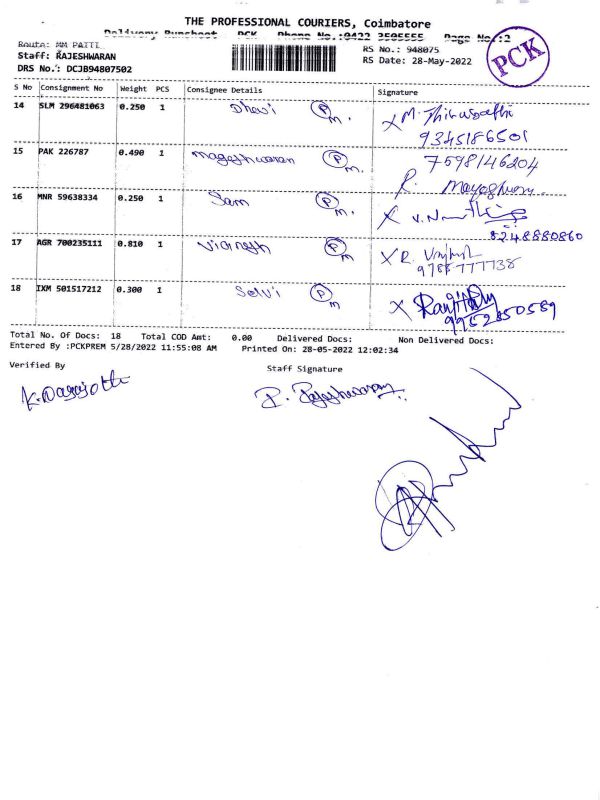 THE PROFESSIONAL COURIERS, Coimbatore
Delivery Runsheet PCK Phone No.:0422 3505555 Page No.:2
Route: MM PATTI
Staff: RAJESHWARAN
DRS No.: DCJB94807502
RS No.: 948075
RS Date: 28-May-2022
PCK
S No Consignment No Weight PCS Consignee Details Signature
14 SLM 296481063 0.250 1 P M.
9345186501
15 PAK 226787 0.490 1 mageshwaran P M. 7598146204
R.
16 MNR 59638334 0.250 1 Sam P M. X V.
8248880860
17 AGR 700235111 0.810 1 Vignesh P M X R.
9788777738
18 IXM 501517212 0.300 1 Selvi P M X
9952850589
Total No. Of Docs: 18 Total COD Amt: 0.00 Delivered Docs: Non Delivered Docs:
Entered By :PCKPREM 5/28/2022 11:55:08 AM Printed On: 28-05-2022 12:02:34
Verified By
Staff Signature
P. Rajeshwaran